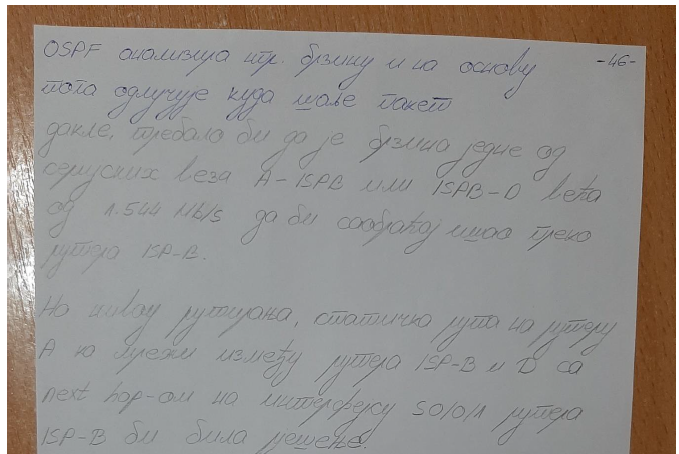 OSPF анализира нпр. брзину и на основу -46-
тога одлучује куда шаље пакет
дакле, требало би да је брзина једне од
серијских веза A-ISPB или ISPB-D већа
од 1.544 Mb/s да би саобраћај ишао преко
рутера ISP-B.
На нивоу рутирања, статичка рута на рутеру
A ка мрежи између рутера ISP-B и D са
next hop-ом на интерфејсу S0/0/1 рутера
ISP-B би била решење.